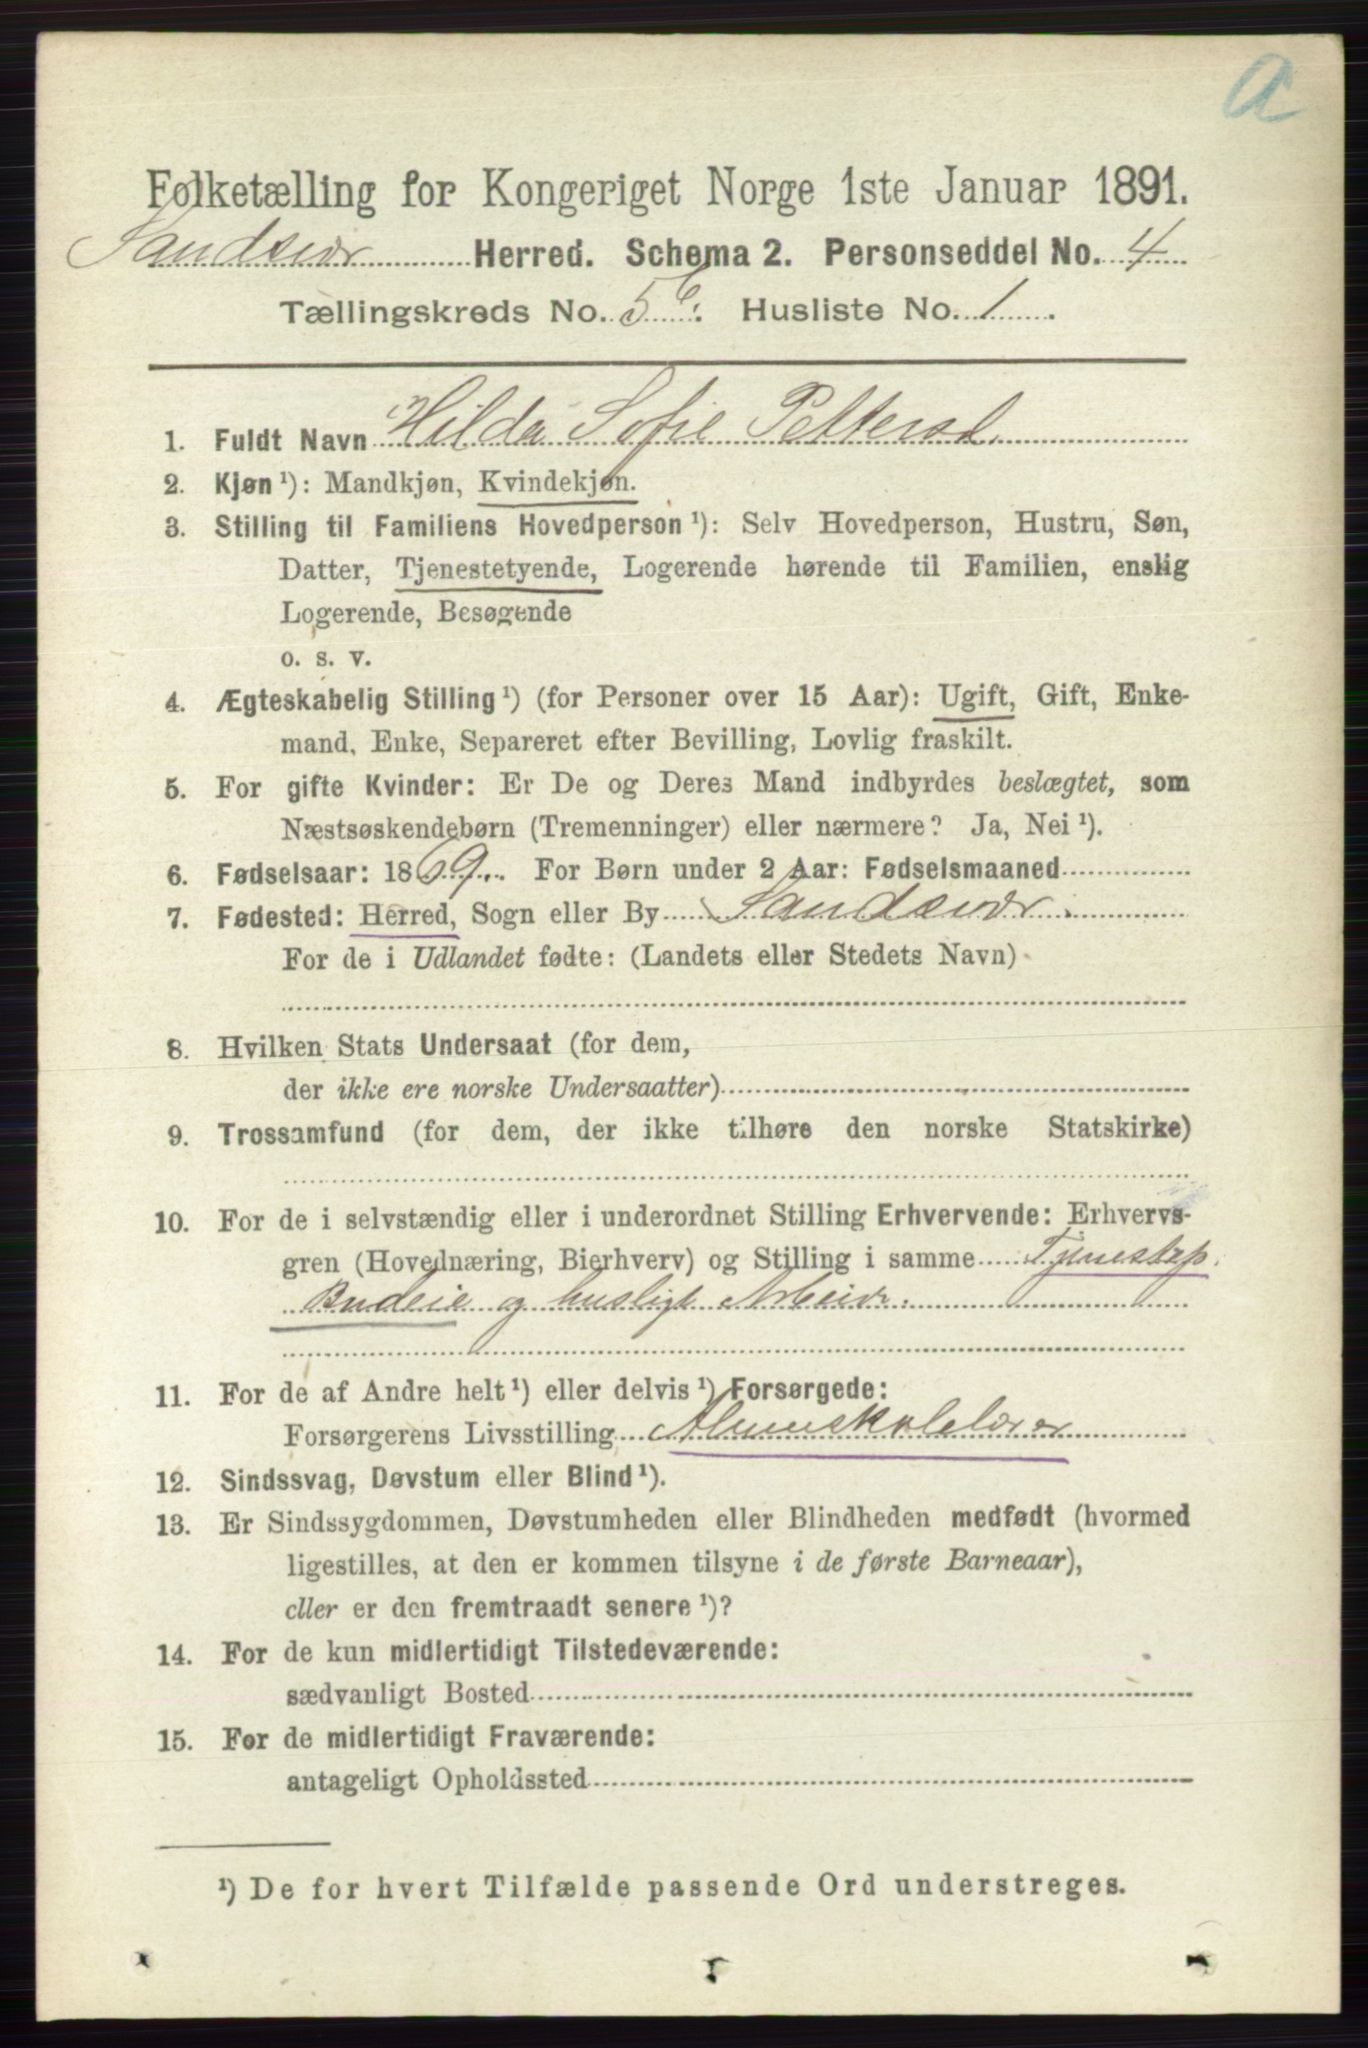 a
Folketælling for Kongeriget Norge 1ste Januar 1891.
Sandsvær Herred. Schema 2. Personseddel No. 4
Tællingskreds No. 5 Husliste No. 1.
1. Fuldt Navn Hilda Sofie Pettersd.
2. Kjøn ¹): Mandkjøn, Kvindekjøn.
3. Stilling til Familiens Hovedperson ¹): Selv Hovedperson, Hustru, Søn,
Datter, Tjenestetyende, Logerende hørende til Familien, enslig
Logerende, Besøgende
o. s. v.
4. Ægteskabelig Stilling ¹) (for Personer over 15 Aar): Ugift, Gift, Enke-
mand, Enke, Separeret efter Bevilling, Lovlig fraskilt.
5. For gifte Kvinder: Er De og Deres Mand indbyrdes beslægtet, som
Næstsøskendebørn (Tremenninger) eller nærmere? Ja, Nei ¹).
6. Fødselsaar: 1869. For Børn under 2 Aar: Fødselsmaaned
7. Fødested: Herred, Sogn eller By Sandsvær.
For de i Udlandet fødte: (Landets eller Stedets Navn)
8. Hvilken Stats Undersaat (for dem,
der ikke ere norske Undersaatter)
9. Trossamfund (for dem, der ikke tilhøre den norske Statskirke)
10. For de i selvstændig eller i underordnet Stilling Erhvervende: Erhvervs-
gren (Hovednæring, Bierhverv) og Stilling i samme
Budeie og husligt Arbeide.
11. For de af Andre helt ¹) eller delvis ¹) Forsørgede:
Forsørgerens Livsstilling Almueskolelærer
12. Sindssvag, Døvstum eller Blind ¹).
13. Er Sindssygdommen, Døvstumheden eller Blindheden medfødt (hvormed
ligestilles, at den er kommen tilsyne i de første Barneaar),
eller er den fremtraadt senere ¹)?
14. For de kun midlertidigt Tilstedeværende:
sædvanligt Bosted
15. For de midlertidigt Fraværende:
antageligt Opholdssted
¹) De for hvert Tilfælde passende Ord understreges.